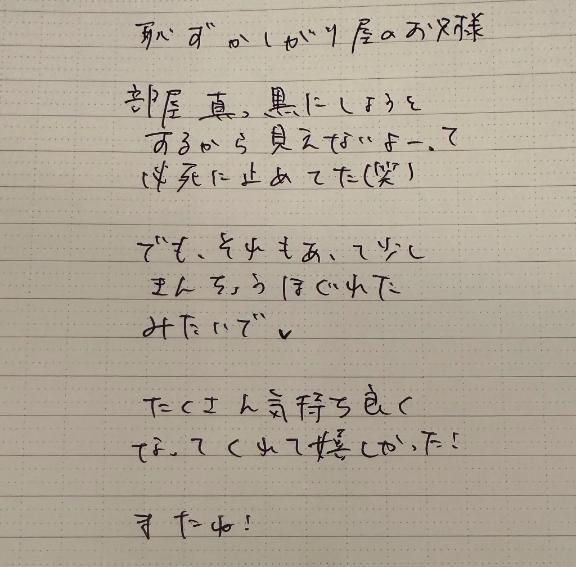 恥ずかしがり屋のお兄様
部屋真っ黒にしようと
するから見えないよーって
必死に止めてた(笑)
でも、それもあって少し
きんちょうほぐれた
みたいで
たくさん気持ち良く
なってくれて嬉しかった!
またね!